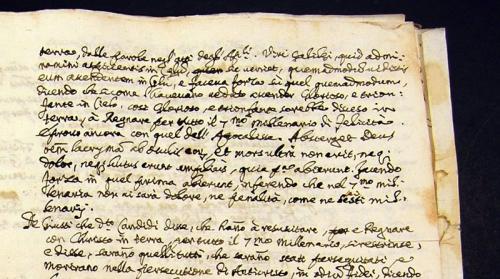 terra, dalle parole negl'atti degl'Ap.li. Viri Galilei, quid admi-
ramini aspicientes in Celū, veniet, quemadmodū vidistis
eum ascendentem in Celū, e faceva forza sù quel quemadmodum,
dicendo che come l'havevano veduto ascender Glorioso, e trion-
fante in Cielo, così Glorioso, e trionfante sarebbe disceso in
terra, à Regnare per tutto il 7.mo millenario di felicità.
e provò ancora con quel dell'Apocalisse. Absterget Deus
oēm lacryma ab oculis eor, et mors ultra non erit, neq
dolor, neq luctus erunt amplius, quia pª abierunt. facendo
forza in quel prima abierunt, inferendo che nel 7.mo mil-
lenario non ci sarà dolore, ne penalità, come ne sesti mil-
lenarij.
De Giusti che d.to Candidi disse, che hanno à resuscitare, e Regnare
con Christo in terra, per tutto il 7.mo millenario, si restrinse,
e disse, saranno quelli tutti, che saranno stati perseguitati, e
morranno nella persecutione di Antichristo, in odio fidei, dicendo